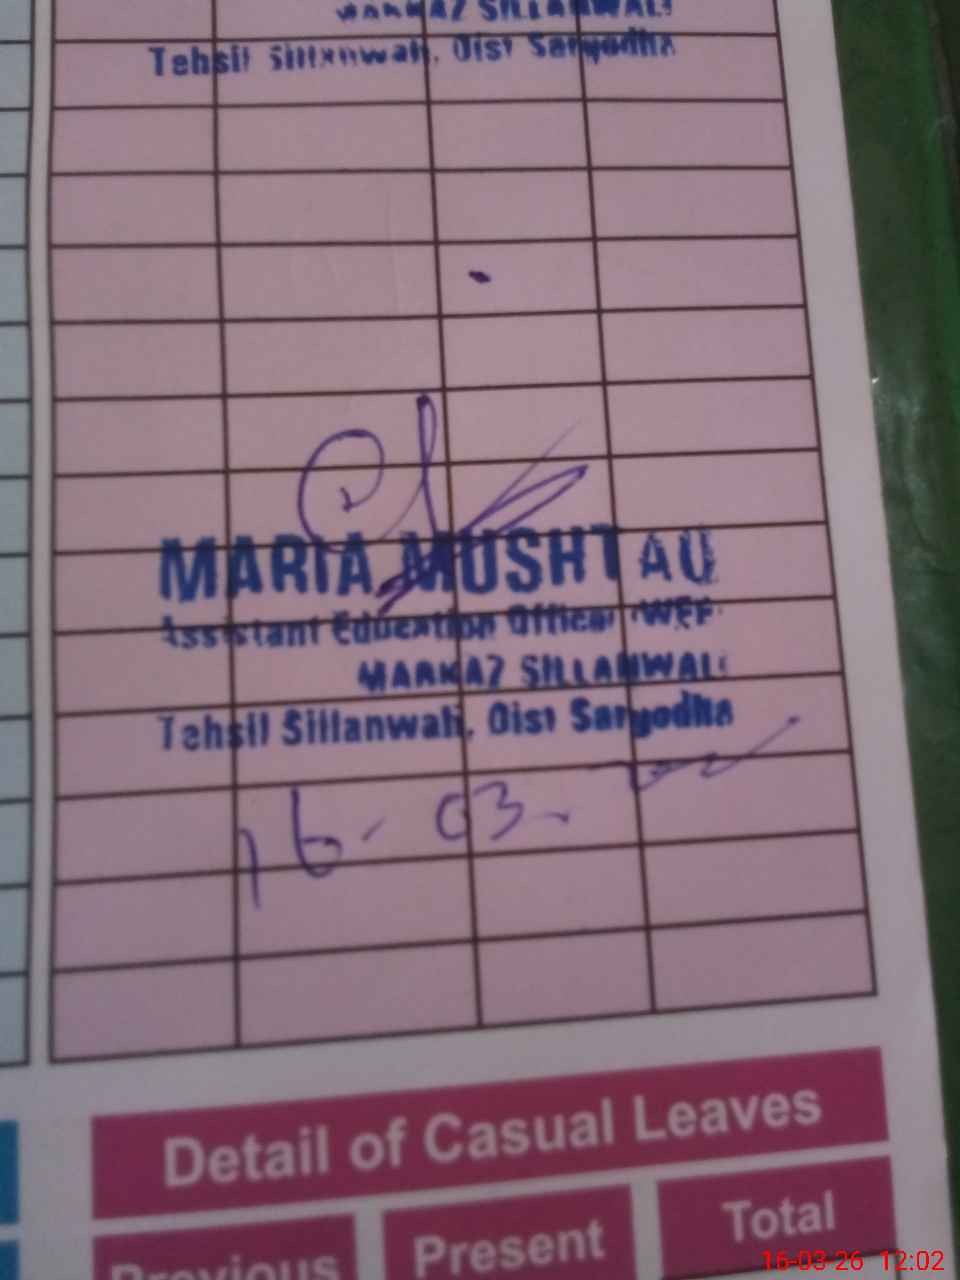 MARKAZ SILLANWALI
Tehsil Sillanwali, Dist Sargodha
MARIA MUSHTAQ
Assistant Education Officer (WEE
MARKAZ SILLANWALI
Tehsil Sillanwali, Dist Sargodha
16-03-
Detail of Casual Leaves
Previous Present Total
16-03-26 12:02